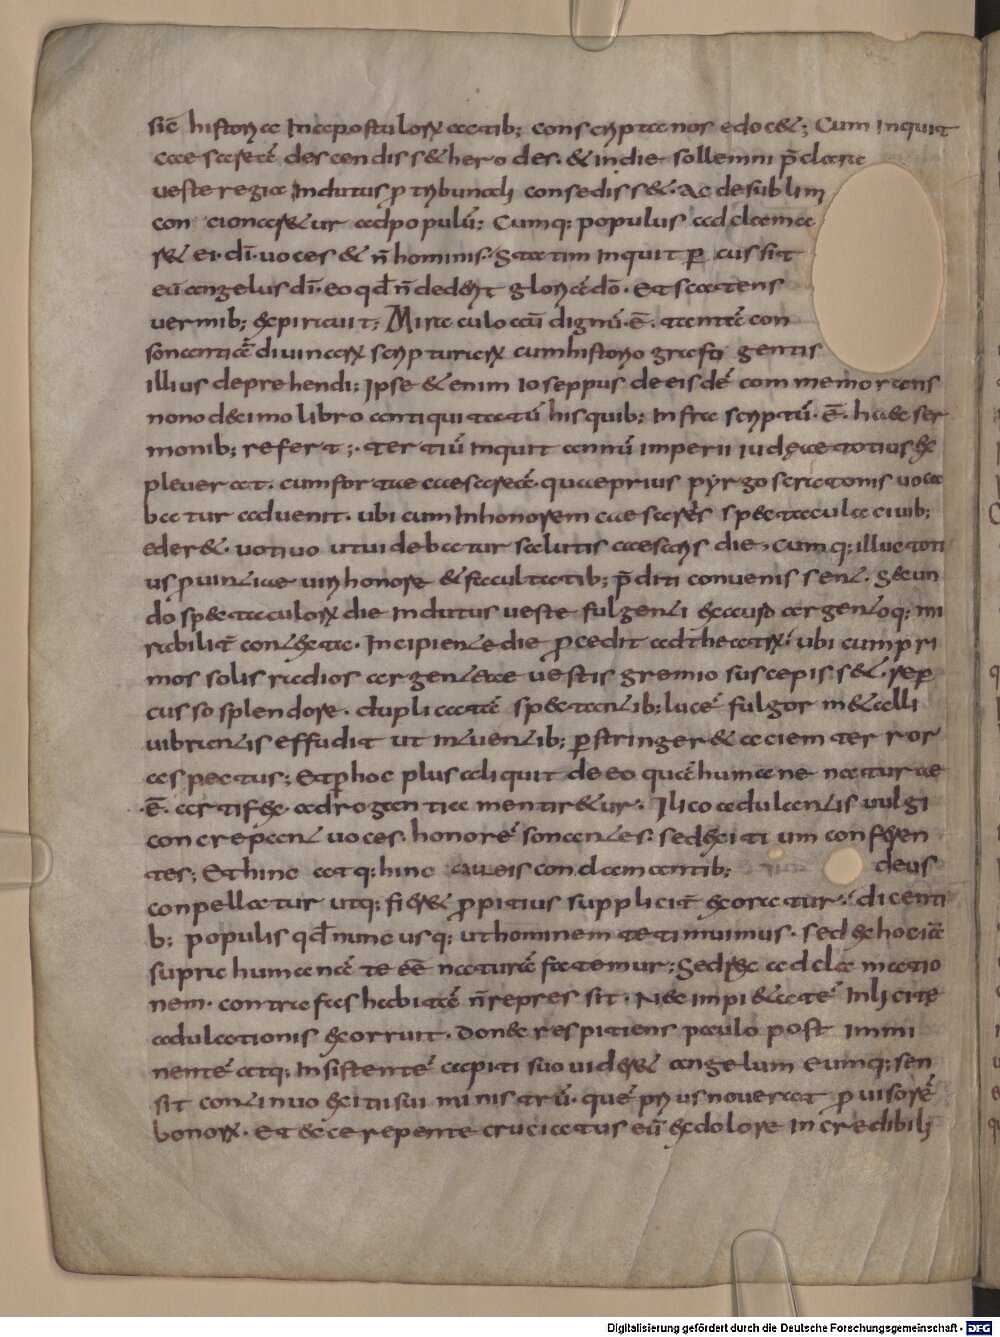 siē historiae In apostulorū actib; conscriptanos edoc&; Cum inquit
caesaseā descendiss& herodes. & in die sollemni p̄clara
veste regia Indutus p tribunali consediss&. Ac de sublim
con cionar&ur ad populū; Cumq; populus adclama
r& ei. dī. uoces & n̄ hominis; Statim Inquit per cussit
eū angelus dī. eo qđ n̄ dedert gloriā dō. Et scatens
vermib; expirauit; Miraculo aū dignū. ē. tantā con
sonantiā diuinarū scripturarū cum historio grafo gentis
illius deprehendi; Ipse & enim Ioseppus de eisdē commemorans
nono decimo libro antiquitatū his quib; Infra scriptū. ē. haec ser
monib; refert;. Tertiū Inquit annū imperii iudęae totius ex
pleuerat. cum forte caesareā. quae prius pyrgos cratonis uoca
batur aduenit. ubi cum In honorem caesaris spectacula ciuib;
eder&. uotiuo utuidebatur salutis caesaris die, Cumq; illuc toti
us prouinciae uiri honore & facultatib; p̄diti convenissent. Secun
do spectaculorū die Indutus ueste fulgenti ex auro argentoq; mi
rabilit̄ contexta. Incipiente die procedit ad theatrū. ubi cum pri
mos solis radios argenteae vestis gremio suscepiss&. reper
cusso splendore. duplicatā spectantib; lucē fulgor m&alli
uibrantis effudit ut intuentib; perstringer& aciem terror
aspectus; Et per hoc plus aliquit de eo quā humane naturae
ē. artifex adrogantia mentir&ur. Ilico adulantis vulgi
concrepant uoces. honorē sonantes. sed exitium conferen
tes; Et hinc atq; hinc caueis condamantib; deus
conpellatur utq; fier& propitius supplicit̄ exoratur. dicenti
b; populis qđ nunc usq; ut hominem te timuimus. sed ex hoc iā
supra humanā te ēē naturā fatemur; Sed rex adclamatio
nem. contra fas habitā n̄ repressit. Nec impi&atē Inlicitę
adulationis exorruit. Donec respitiens paulo post immi
nentē atq; Insistentē capiti suo uider& angelum Eumq; sen
sit continuo exitii sui ministrū. quē prius nouerat prouisorē
bonorū. Et ecce repente cruciatus eū ex dolore incredibili
Digitalisierung gefördert durch die Deutsche Forschungsgemeinschaft - DFG